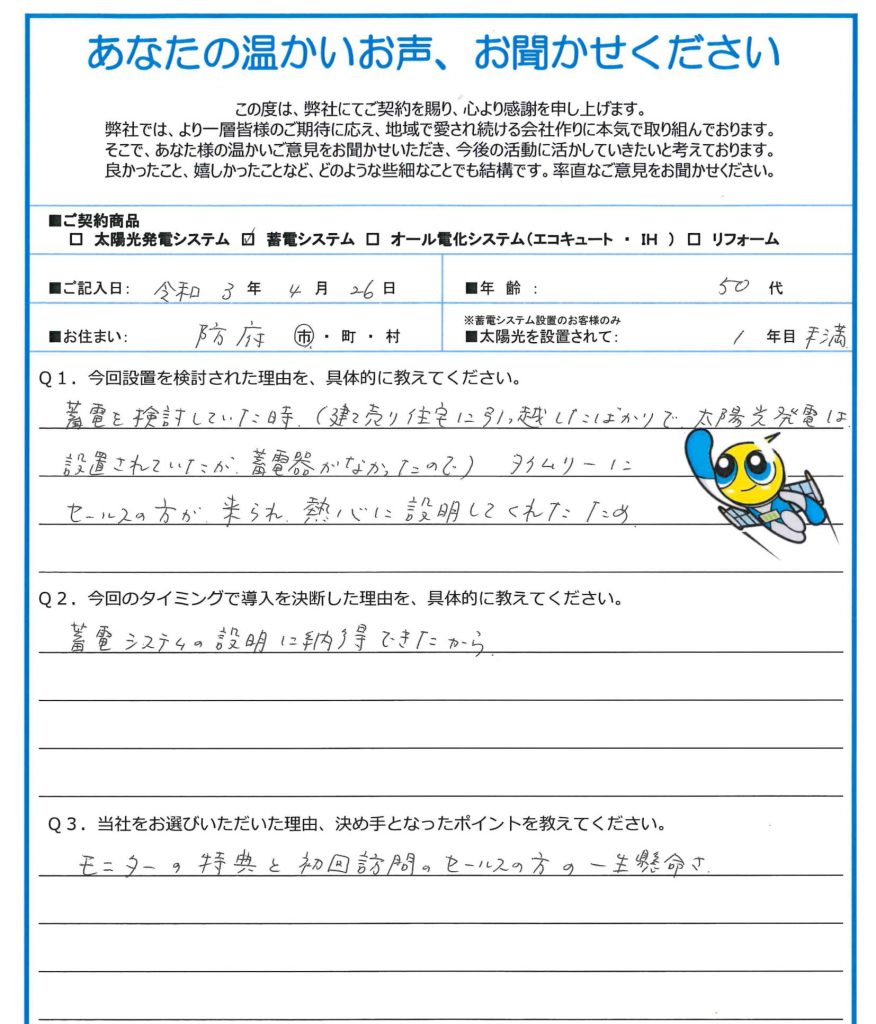 あなたの温かいお声、お聞かせください
この度は、弊社にてご契約を賜り、心より感謝を申し上げます。
弊社では、より一層皆様のご期待に応え、地域で愛され続ける会社作りに本気で取り組んでおります。
そこで、あなた様の温かいご意見をお聞かせいただき、今後の活動に活かしていきたいと考えております。
良かったこと、嬉しかったことなど、どのような些細なことでも結構です。率直なご意見をお聞かせください。
■ご契約商品
□ 太陽光発電システム ☑ 蓄電システム □ オール電化システム(エコキュート ・ IH ) □ リフォーム
■ご記入日: 令和 3 年 4 月 26 日 ■年 齢 : 50 代
※蓄電システム設置のお客様のみ
■お住まい: 防府 市・町・村 ■太陽光を設置されて: 1 年目 未満
Q1. 今回設置を検討された理由を、具体的に教えてください。
蓄電を検討していた時、(建て売り住宅に引っ越ししたばかりで、太陽光発電は
設置されていたが、蓄電器がなかったので) タイムリーに
セールスの方が、来られ、熱心に説明してくれたため
Q2. 今回のタイミングで導入を決断した理由を、具体的に教えてください。
蓄電システムの説明に納得できたから
Q3. 当社をお選びいただいた理由、決め手となったポイントを教えてください。
モニターの特典と初回訪問のセールスの方の一生懸命さ